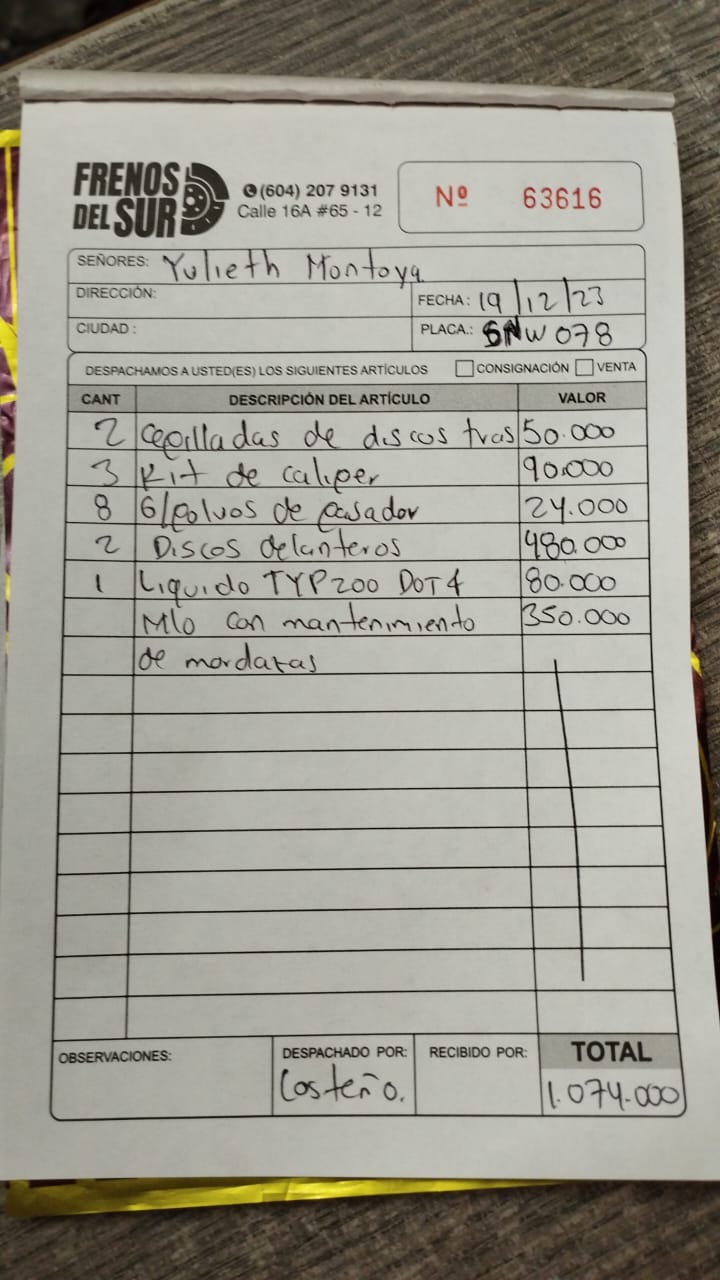 FRENOS
DEL SUR
(604) 207 9131
Calle 16A #65 - 12
Nº 63616
SEÑORES: Yulieth Montoya
DIRECCIÓN:
FECHA: 19/12/23
CIUDAD :
PLACA.: SNW 078
DESPACHAMOS A USTED(ES) LOS SIGUIENTES ARTÍCULOS CONSIGNACIÓN VENTA
CANT DESCRIPCIÓN DEL ARTÍCULO VALOR
2 Cepilladas de discos tras 50.000
3 Kit de caliper 90.000
8 G/polvos de pasador 24.000
2 Discos delanteros 480.000
1 Liquido TYP200 DOT4 80.000
M/o con mantenimiento 350.000
de mordazas
OBSERVACIONES:
DESPACHADO POR: Costeño.
RECIBIDO POR:
TOTAL
1.074.000